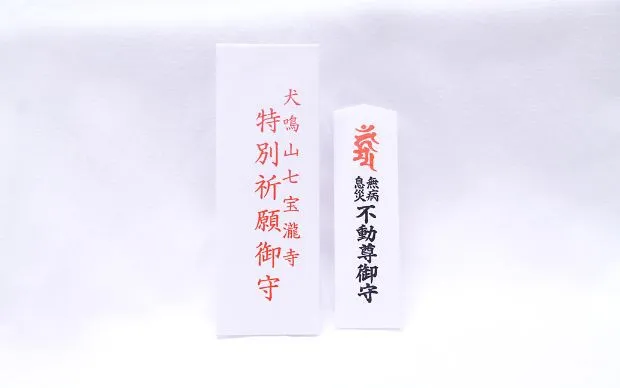 犬鳴山七宝瀧寺
特別祈願御守
無病
息災
不動尊御守